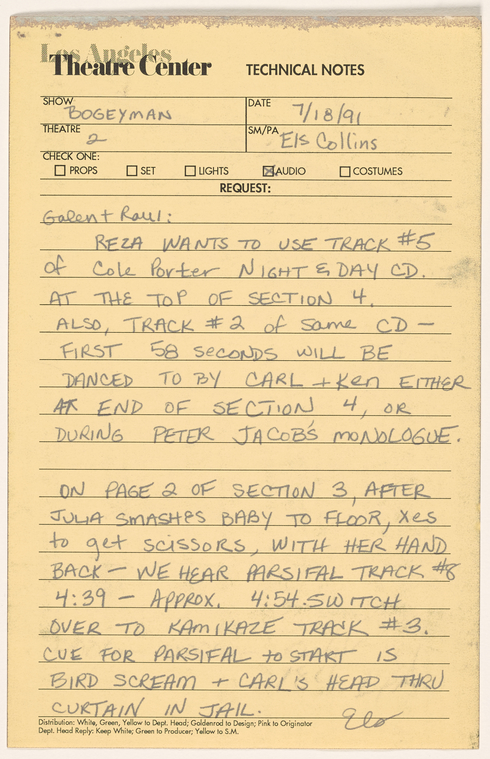 Los Angeles
Theatre Center TECHNICAL NOTES
SHOW BOGEYMAN DATE 7/18/91
THEATRE 2 SM/PA Els Collins
CHECK ONE:
PROPS SET LIGHTS AUDIO COSTUMES
REQUEST:
Galen + Raul:
REZA WANTS TO USE TRACK #5
of Cole Porter NIGHT & DAY CD.
AT THE TOP OF SECTION 4.
ALSO, TRACK #2 of same CD —
FIRST 58 seconds WILL BE
DANCED TO BY CARL + Ken EITHER
AT END OF SECTION 4, OR
DURING PETER JACOB'S MONOLOGUE.
ON PAGE 2 OF SECTION 3, AFTER
JULIA SMASHES BABY TO FLOOR, Xes
to get SCISSORS, WITH HER HAND
BACK — WE HEAR PARSIFAL TRACK #8
4:39 — APPROX. 4:54. SWITCH
OVER TO KAMIKAZE TRACK #3.
CUE FOR PARSIFAL to START IS
BIRD SCREAM + CARL'S HEAD THRU
CURTAIN IN JAIL.
Distribution: White, Green, Yellow to Dept. Head; Goldenrod to Design; Pink to Originator
Dept. Head Reply: Keep White; Green to Producer; Yellow to S.M.